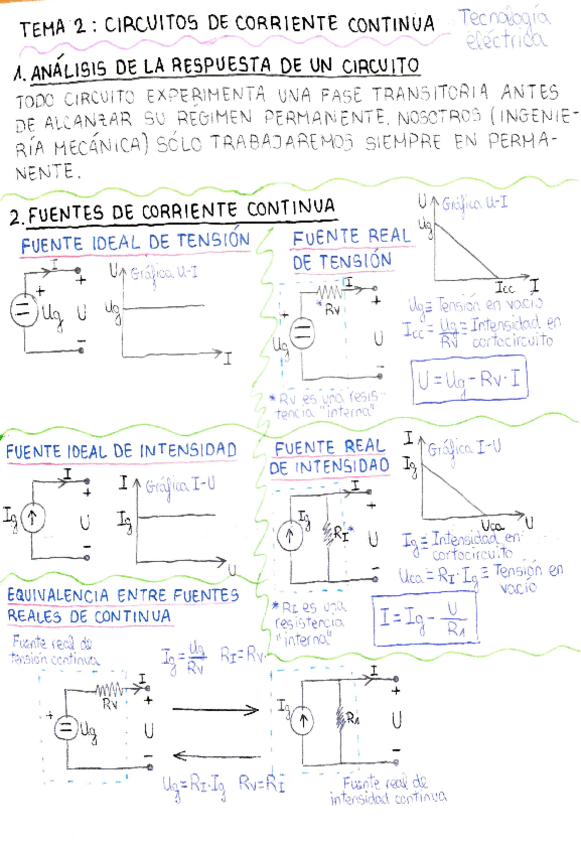 TEMA 2: CIRCUITOS DE CORRIENTE CONTINUA
Tecnología
eléctrica
1. ANÁLISIS DE LA RESPUESTA DE UN CIRCUITO
TODO CIRCUITO EXPERIMENTA UNA FASE TRANSITORIA ANTES
DE ALCANZAR SU REGIMEN PERMANENTE. NOSOTROS (INGENIE-
RÍA MECÁNICA) SÓLO TRABAJAREMOS SIEMPRE EN PERMA-
NENTE.
2. FUENTES DE CORRIENTE CONTINUA
FUENTE IDEAL DE TENSIÓN
I
+
Ug
+
U
-
U
Gráfica U-I
Ug
I
FUENTE REAL
DE TENSIÓN
I
* RV
+
Ug
+
U
-
* RV es una resis-
tencia "interna"
U
Gráfica U-I
Ug
Icc
I
Ug ≡ Tensión en vacío
Icc = Ug/RV ≡ Intensidad en
cortocircuito
U = Ug - RV · I
FUENTE IDEAL DE INTENSIDAD
I
Ig
+
U
-
I
Gráfica I-U
Ig
U
FUENTE REAL
DE INTENSIDAD
I
Ig
RI *
+
U
-
* RI es una
resistencia
"interna"
I
Gráfica I-U
Ig
Uca
U
Ig ≡ Intensidad en
cortocircuito
Uca = RI · Ig ≡ Tensión en
vacío
I = Ig - U/R1
EQUIVALENCIA ENTRE FUENTES
REALES DE CONTINUA
Fuente real de
tensión continua
Ig = Ug/RV RI = RV
I
RV
+
Ug
+
U
-
Ug = RI · Ig RV = RI
I
Ig
R1
+
U
-
Fuente real de
intensidad continua